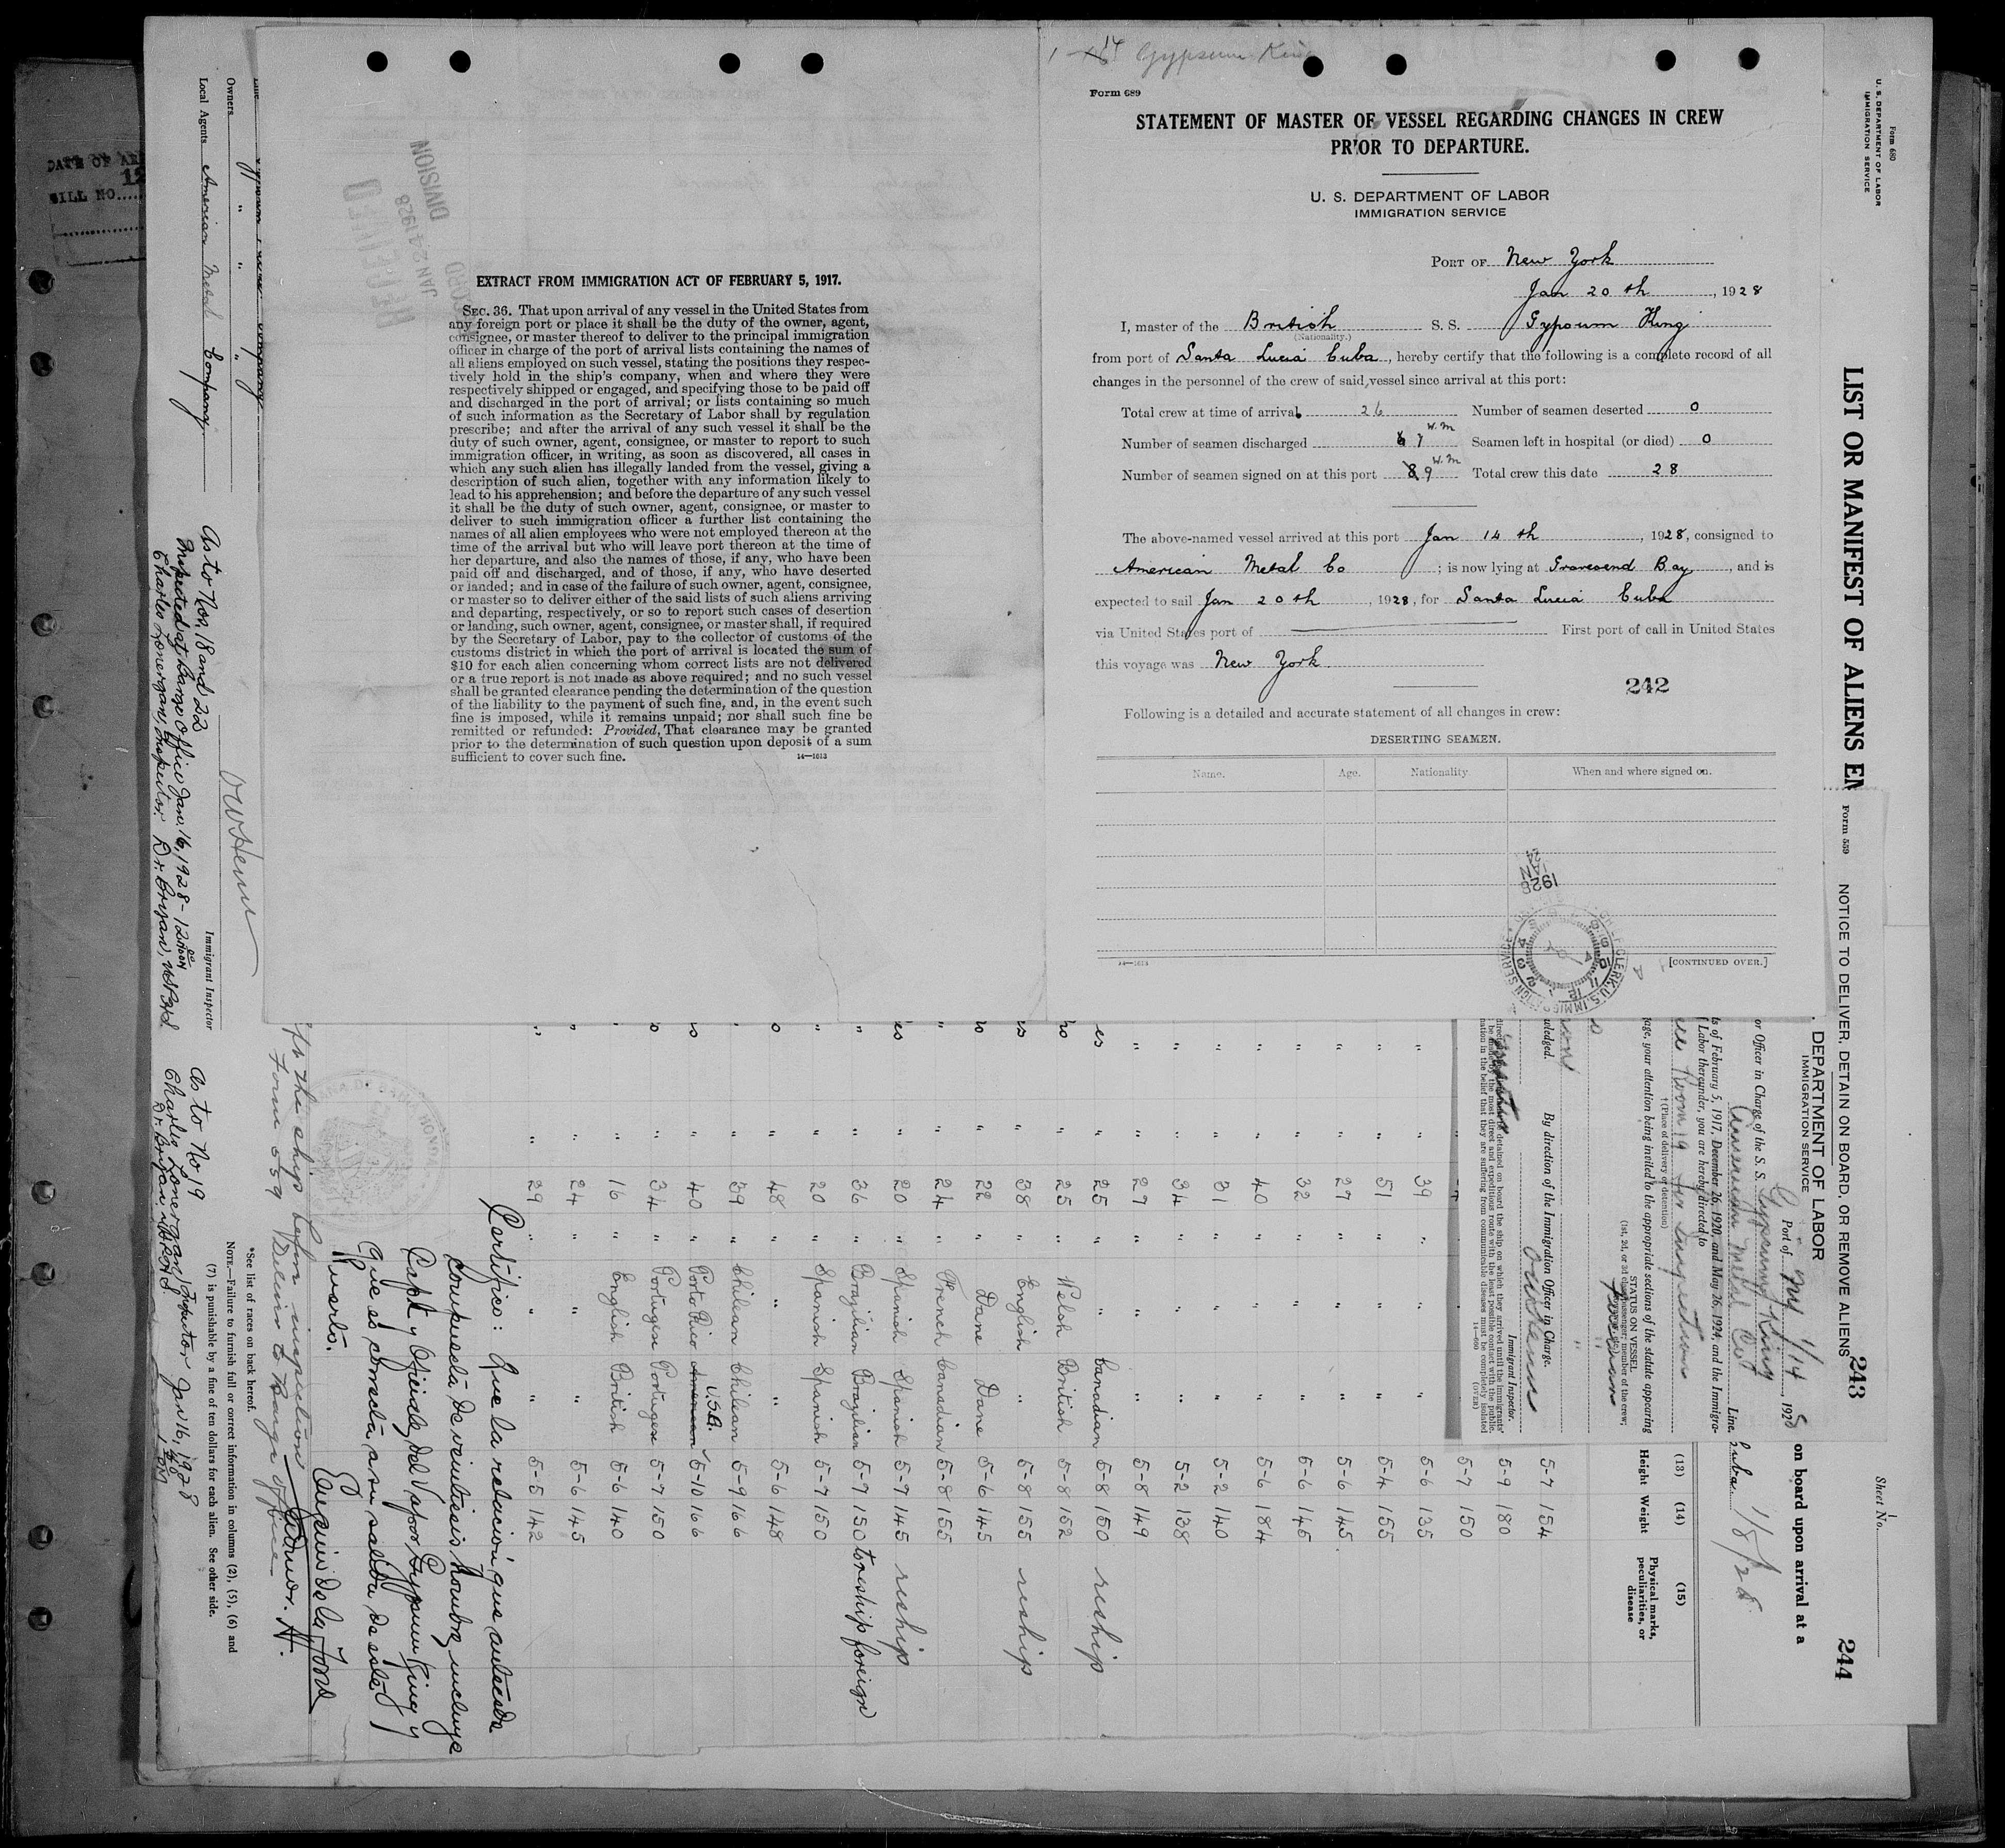 1 14 Gypsum King
Form 689
STATEMENT OF MASTER OF VESSEL REGARDING CHANGES IN CREW
PRIOR TO DEPARTURE.
U. S. DEPARTMENT OF LABOR
IMMIGRATION SERVICE
PORT OF New York
Jan 20 th, 1928
I, master of the British S. S. Gypsum King
(Nationality.)
from port of Santa Lucia Cuba, hereby certify that the following is a complete record of all
changes in the personnel of the crew of said vessel since arrival at this port:
Total crew at time of arrival 26 Number of seamen deserted 0
Number of seamen discharged 7 W.M Seamen left in hospital (or died) 0
Number of seamen signed on at this port 8 9 W.M Total crew this date 28
The above-named vessel arrived at this port Jan 14 th, 1928, consigned to
American Metal Co; is now lying at Gravesend Bay, and is
expected to sail Jan 20 th, 1928, for Santa Lucia Cuba
via United States port of First port of call in United States
this voyage was New York
242
Following is a detailed and accurate statement of all changes in crew:
DESERTING SEAMEN.
Name. Age. Nationality When and where signed on.
JAN 24 1928
14—1613
[CONTINUED OVER.]
RECEIVED
JAN 24 1928
RECORD DIVISION
EXTRACT FROM IMMIGRATION ACT OF FEBRUARY 5, 1917.
SEC. 36. That upon arrival of any vessel in the United States from
any foreign port or place it shall be the duty of the owner, agent,
consignee, or master thereof to deliver to the principal immigration
officer in charge of the port of arrival lists containing the names of
all aliens employed on such vessel, stating the positions they respec-
tively hold in the ship's company, when and where they were
respectively shipped or engaged, and specifying those to be paid off
and discharged in the port of arrival; or lists containing so much
of such information as the Secretary of Labor shall by regulation
prescribe; and after the arrival of any such vessel it shall be the
duty of such owner, agent, consignee, or master to report to such
immigration officer, in writing, as soon as discovered, all cases in
which any such alien has illegally landed from the vessel, giving a
description of such alien, together with any information likely to
lead to his apprehension; and before the departure of any such vessel
it shall be the duty of such owner, agent, consignee, or master to
deliver to such immigration officer a further list containing the
names of all alien employees who were not employed thereon at the
time of the arrival but who will leave port thereon at the time of
her departure, and also the names of those, if any, who have been
paid off and discharged, and of those, if any, who have deserted
or landed; and in case of the failure of such owner, agent, consignee,
or master so to deliver either of the said lists of such aliens arriving
and departing, respectively, or so to report such cases of desertion
or landing, such owner, agent, consignee, or master shall, if required
by the Secretary of Labor, pay to the collector of customs of the
customs district in which the port of arrival is located the sum of
$10 for each alien concerning whom correct lists are not delivered
or a true report is not made as above required; and no such vessel
shall be granted clearance pending the determination of the question
of the liability to the payment of such fine, and, in the event such
fine is imposed, while it remains unpaid; nor shall such fine be
remitted or refunded: Provided, That clearance may be granted
prior to the determination of such question upon deposit of a sum
sufficient to cover such fine.
14—1613
DATE OF AR
12
BILL NO.
Form 680
U. S. DEPARTMENT OF LABOR
IMMIGRATION SERVICE
LIST OR MANIFEST OF ALIENS EM
Sheet No. 1
244
on board upon arrival at a
Cuba. 1/8/28
(13) (14) (15)
Height Weight Physical marks, peculiarities, or disease
5-7 154
5-9 180
5-7 150
39 " " " 5-6 135
51 " " " 5-4 155
27 " " " 5-6 145
32 " " " 5-6 145
40 " " " 5-6 184
31 " " " 5-2 140
34 " " " 5-2 138
27 " " " 5-8 149
25 " " Canadian 5-8 150 reship
25 " Welsh British 5-8 152
38 " English " 5-8 155 reship
22 " Dane Dane 5-6 145
24 " French Canadian 5-8 155
20 " Spanish Spanish 5-7 145 reship
36 " Brazilian Brazilian 5-7 150 to reship foreign
20 " Spanish Spanish 5-7 150
48 " " " 5-6 148
39 " Chilean Chilean 5-9 166
40 " Porto Rico American U.S.A. 5-10 166
34 " Portugese Portugese 5-7 150
16 " English British 5-6 140
24 " " " 5-6 145
29 " " " 5-5 142
Certifico: Que la relacion que antecede
compuesta de veintiseis hombres incluye
Capt y Oficiales del Vapor Gypsum King y
que es correcta a su salida de este
Puerto.
Form 559
NOTICE TO DELIVER, DETAIN ON BOARD, OR REMOVE ALIENS
243
DEPARTMENT OF LABOR
IMMIGRATION SERVICE
Port of NY 1/14, 1928
or Officer in Charge of the S. S. Gypsum King
American Metal Co Line.
ts of February 5, 1917, December 26, 1920, and May 26, 1924, and the Immigra-
Labor thereunder, you are hereby directed to
†(Place of delivery or detention)
age, your attention being invited to the appropriate sections of the statute appearing
STATUS ON VESSEL
By direction of the Immigration Officer in Charge.
Immigrant Inspector.
Owners
Local Agents American Metal Company
Immigrant Inspector
As to Nos, 18 and 22
Inspected at Barge Office Jan, 16, 1928 - 12 noon
Charles Lonergan, Inspector. Dr. Bryan, USPHS.
As to No 19
Charles Lonergan, Inspector Jan 16, 1928
Dr. Bryan, USPHS
*See list of races on back hereof.
NOTE.—Failure to furnish full or correct information in columns (2), (5), (6) and
(7) is punishable by a fine of ten dollars for each alien. See other side.